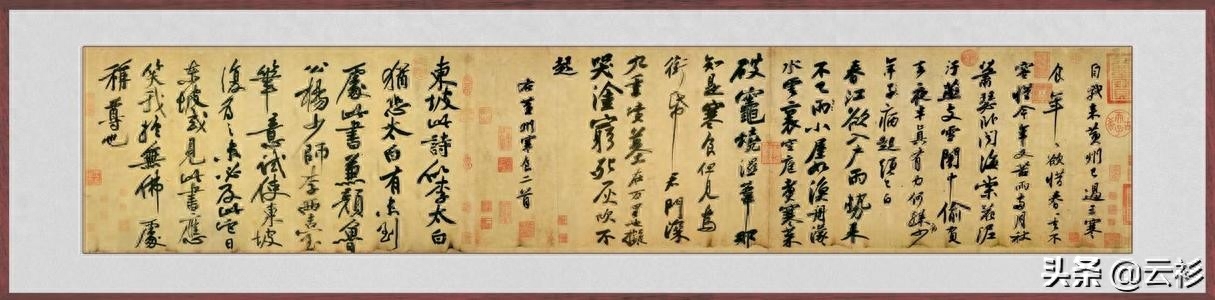 自我来黄州已過三寒
食年〻欲惜春〻去不
容惜今年又苦雨兩月秋
蕭瑟卧聞海棠花泥
汙燕支雪闇中偷負
去夜半真有力何殊少
年子病起頭已白
春江欲入户雨勢来
不已雨小屋如漁舟濛〻
水雲裏空庖煑寒菜
破竈燒濕葦那
知是寒食但見烏
銜帋君門深
九重墳墓在万里也擬
哭塗窮死灰吹不
起
右黄州寒食二首
東坡此詩似李太白
猶恐太白有未到
處此書兼顔魯
公楊少師李西臺
筆意試使東坡
復為之未必及此它日
東坡或見此書應
笑我於無佛處
稱尊也
头条 @云衫